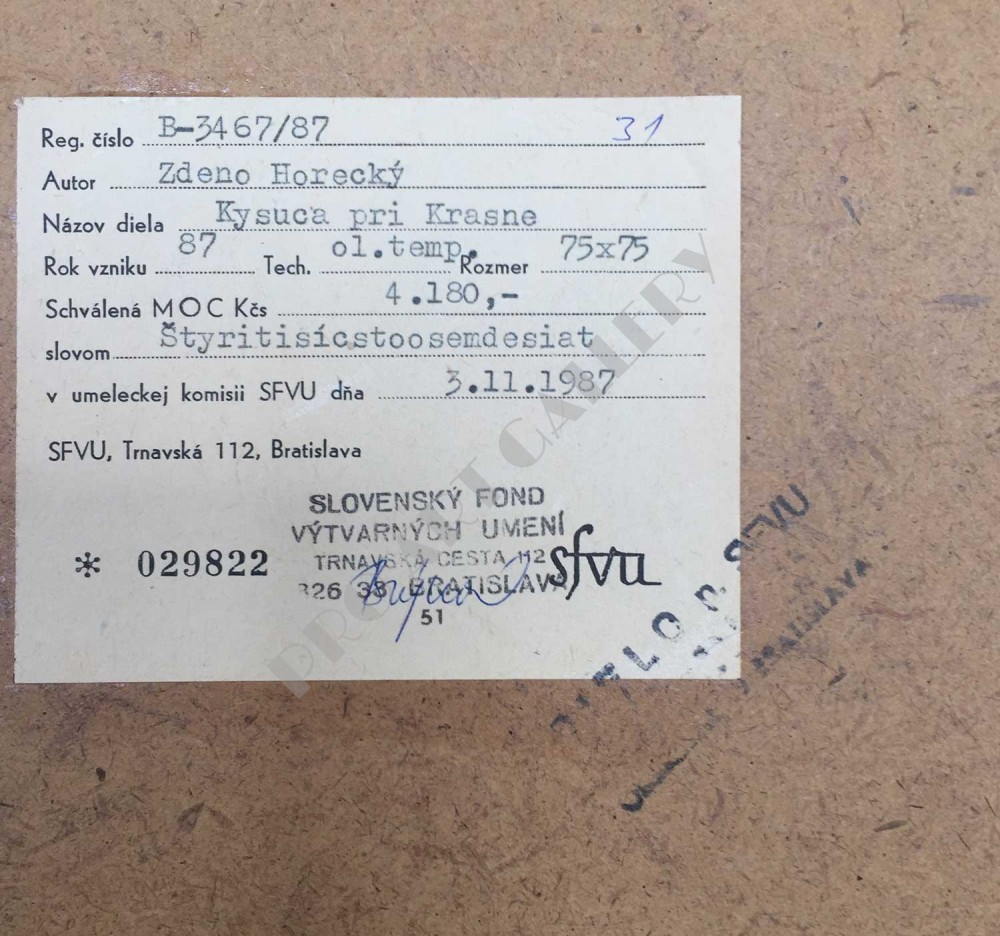 Reg. číslo B-3467/87 31
Autor Zdeno Horecký
Názov diela Kysuca pri Krasne
Rok vzniku 87 Tech. ol.temp. Rozmer 75x75
Schválená MOC Kčs 4.180,-
slovom Štyritisícstoosemdesiat
v umeleckej komisii SFVU dňa 3.11.1987
SFVU, Trnavská 112, Bratislava
SLOVENSKÝ FOND
VÝTVARNÝCH UMENÍ
TRNAVSKÁ CESTA 112
826 33 BRATISLAVA
51
* 029822
sfvu
DIELO SFVU
BRATISLAVA
GALLERY